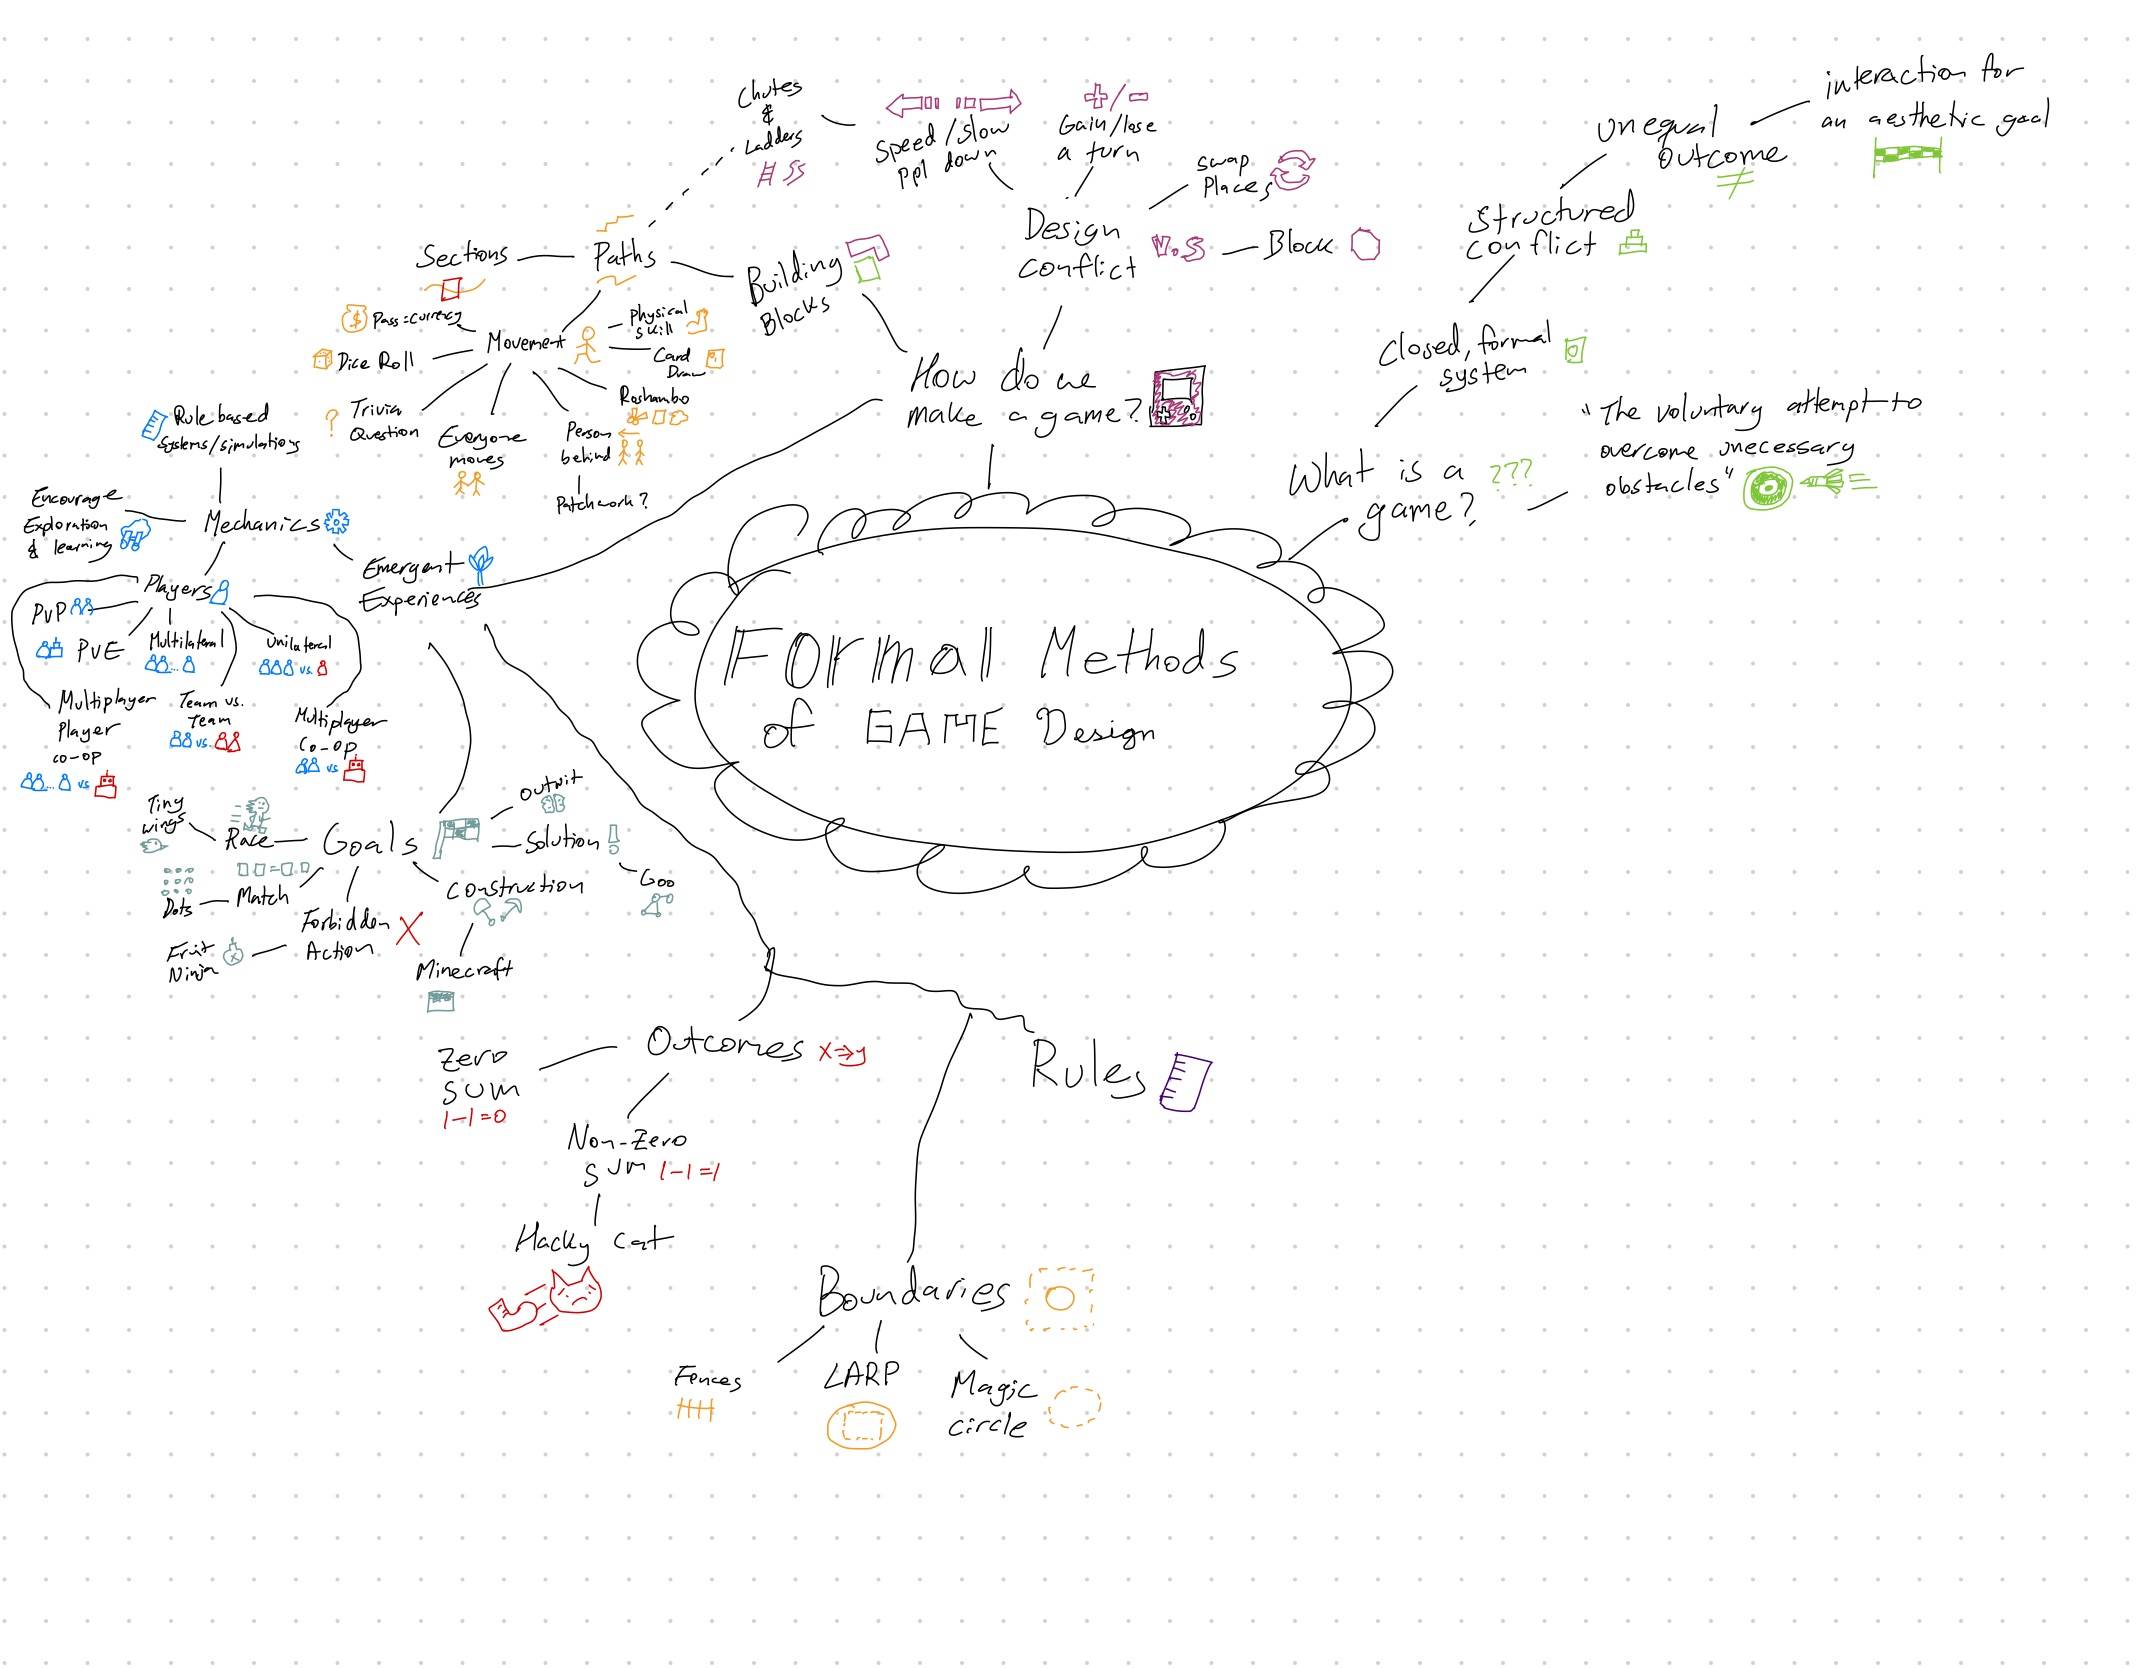 FORMal Methods
of GAME Design
What is a ???
game?
"The voluntary attempt to
overcome unecessary
obstacles"
Closed, formal
system
Structured
conflict
unequal
outcome
≠
interaction for
an aesthetic goal
How do we
make a game?
Design
conflict
V.S
Block
swap
Places
+/-
Gain/lose
a turn
Speed/slow
ppl down
Chutes
&
Ladders
Building
Blocks
Paths
Sections
Movement
Physical
skill
Card
Draw
Roshambo
Person
behind
Patchwork?
Everyone
moves
? Trivia
Question
Dice Roll
$ Pass=currency
Emergent
Experiences
Mechanics
Rule based
systems/simulations
Encourage
Exploration
& learning
Players
PvP
PvE
Multilateral
...
Unilateral
vs.
Multiplayer
Player
co-op
... vs
Team vs.
Team
vs.
Multiplayer
Co-op
vs
Goals
Outwit
Solution !
Goo
Construction
Minecraft
Forbidden
Action X
Fruit
Ninja
Match
Dots
Race
Tiny
wings
Outcomes x⇒y
Zero
sum
1-1=0
Non-Zero
sum 1-1=1
Hacky cat
Rules
Boundaries
Fences
LARP
Magic
circle